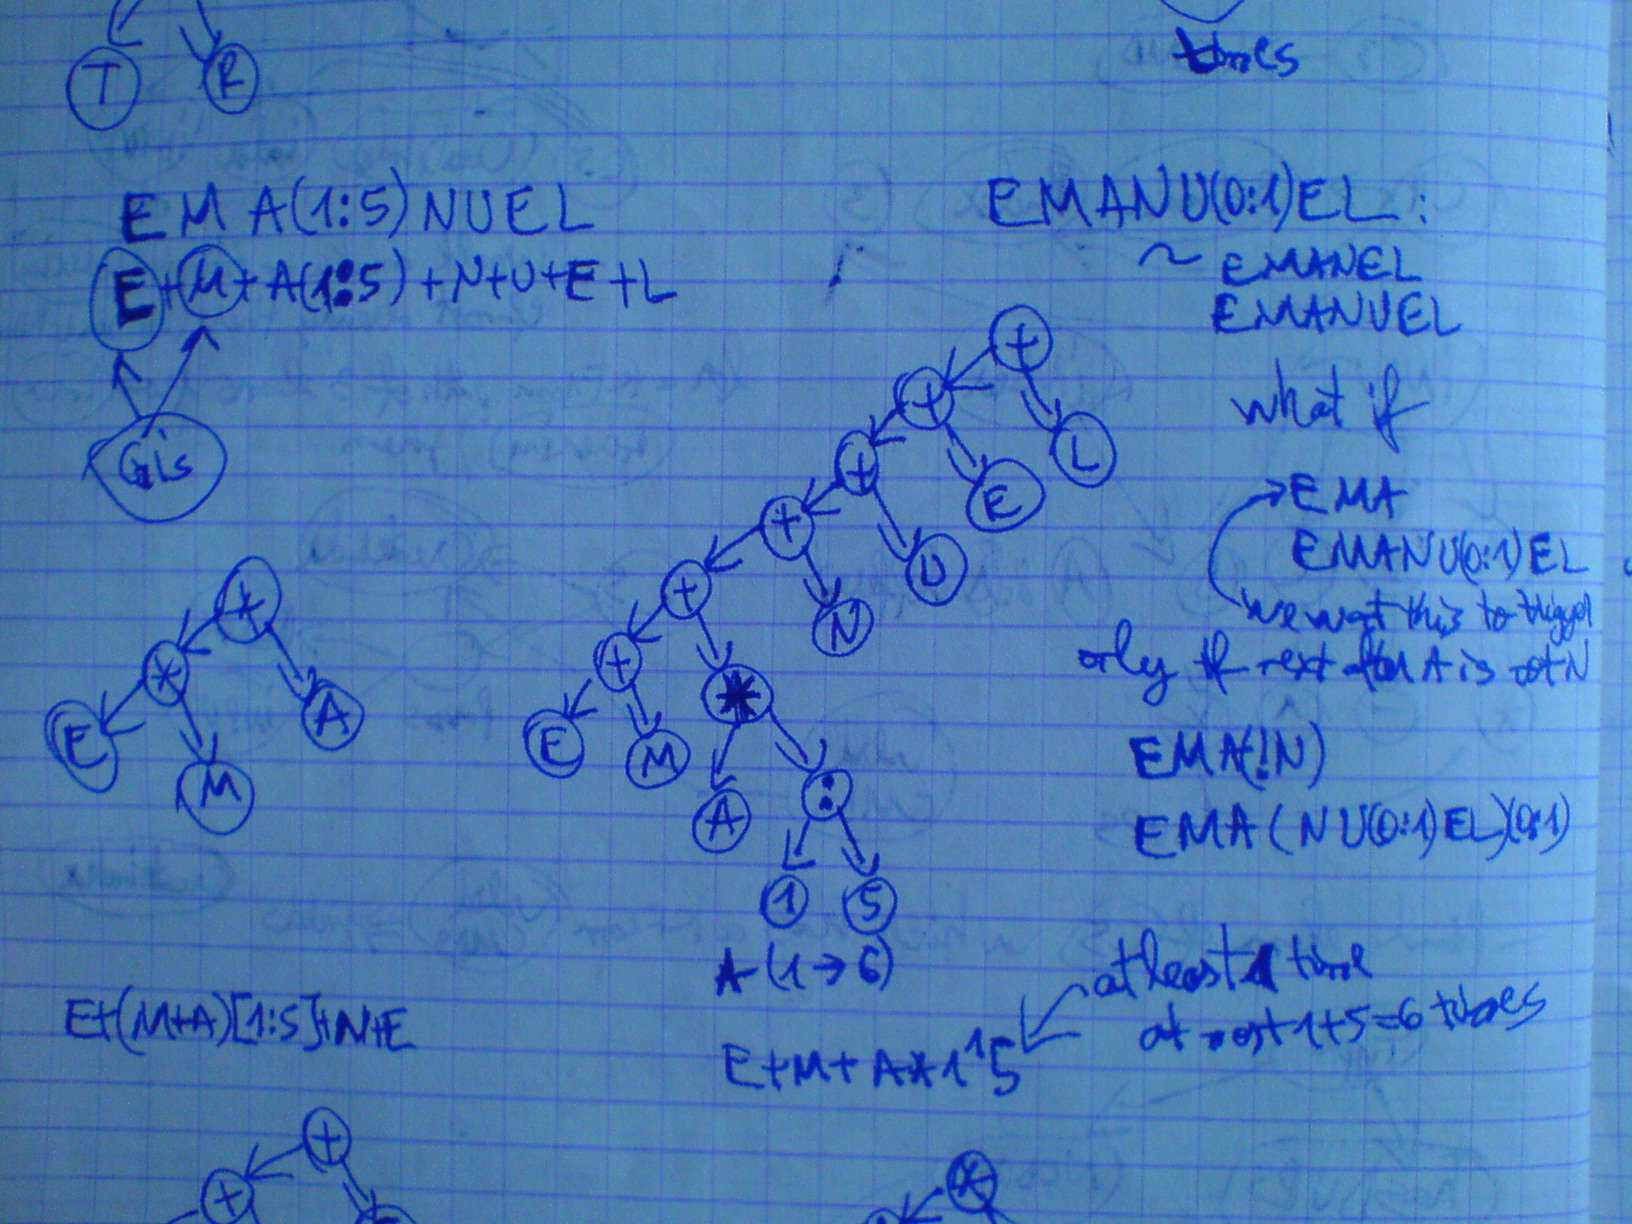 T R
times
EMA(1:5)NUEL
E+M+A(1:5)+N+U+E+L
Gis
EMANU(0:1)EL:
~ EMANEL
EMANUEL
what if
EMA
EMANU(0:1)EL
we want this to trigger
only if next after A is not N
EMA(!N)
EMA(NU(0:1)EL)(0:1)
+
+ L
+ E
+ U
+ N
+ *
E M A :
1 5
A(1→6)
+
* A
E M
at least 1 time
at most 1+5=6 times
E+M+A*1^5
E+(M+A)[1:5]+N+E
+
+
*